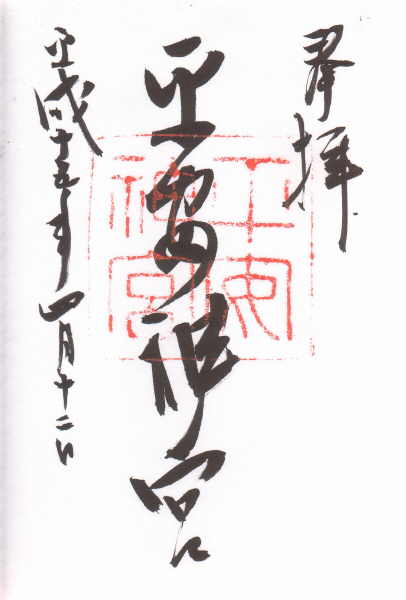 奉拝
平安神宮
平安神宮
平成十五年四月十二日